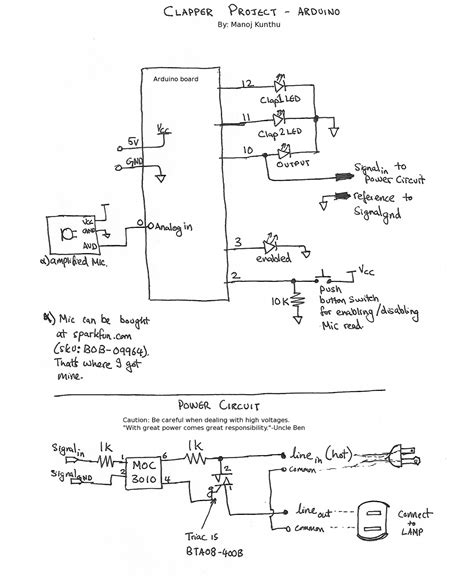 CLAPPER PROJECT - ARDUINO
By: Manoj Kunthu
Arduino board
12
Clap1 LED
11
Clap2 LED
10
OUTPUT
5V
Vcc
GND
Signal in to
Power Circuit
reference to
Signal gnd
0
Analog in
VCC
GND
AUD
a) amplified Mic.
3
enabled
2
10K
Vcc
push
button switch
for enabling/disabling
Mic read
a) Mic can be bought
at sparkfun.com
(sku: BOB-09964).
That's where I got
mine.
POWER CIRCUIT
Caution: Be careful when dealing with high voltages.
"With great power comes great responsibility."-Uncle Ben
Signal in
1K
1
MOC
3010
6
1K
2
4
Signal GND
2
g
1
Triac is
BTA08-400B
line in (hot)
common
line out
common
Connect
to
LAMP